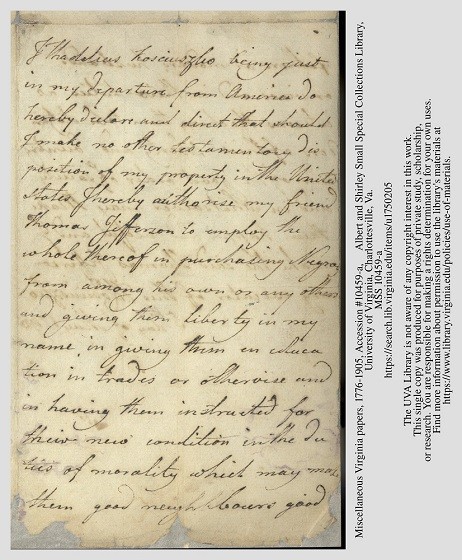 I Thaddeus Kosciuszko being just
in my departure from America do
hereby declare and direct that should
I make no other testamentory dis
position of my property in the United
States I hereby authorise my friend
Thomas Jefferson to employ the
whole thereof in purchasing Negroes
from among his own or any others
and giving them liberty in my
name in giving them en educa
tion in trades or otherwise and
in having them instructed for
their new condition in the du
ties of morality which may make
them good neighbours good
Miscellaneous Virginia papers, 1776-1905, Accession #10459-a, Albert and Shirley Small Special Collections Library,
University of Virginia, Charlottesville, Va.
MSS 10459-a
https://search.lib.virginia.edu/items/u1750205
The UVA Library is not aware of any copyright interest in this work.
This single copy was produced for purposes of private study, scholarship,
or research. You are responsible for making a rights determination for your own uses.
Find more information about permission to use the library's materials at
https://www.library.virginia.edu/policies/use-of-materials.